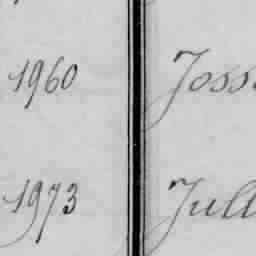 1960 Joss
1973 Jull